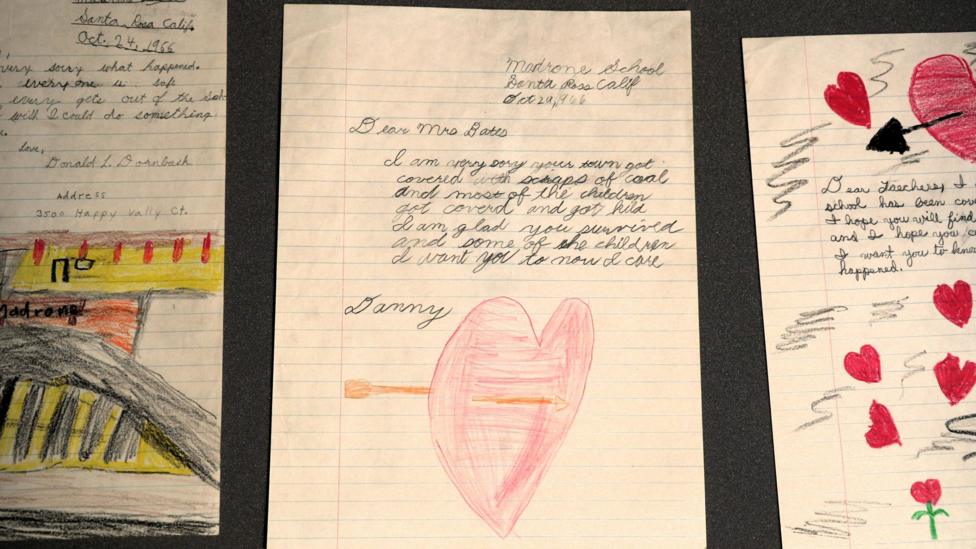 Santa Rosa Calif.
Oct. 24, 1966
very sorry what happened.
everyone is safe
every gets out of the Sch
wish I could do something
Love,
Donald L. Dornbach
address
3500 Happy Vally Ct.
Madrone
Madrone School
Santa Rosa Calif
Oct 24, 1966
Dear Mrs Bates
I am very sory your town got
covered with scraps of coal
and most of the children
got coverd and got kild
I am glad you survived
and some of the children
I want you to now I care
Danny
Dear Teachers, I
school has been cove
I hope you will find
and I hope you c
I want you to kno
happened.